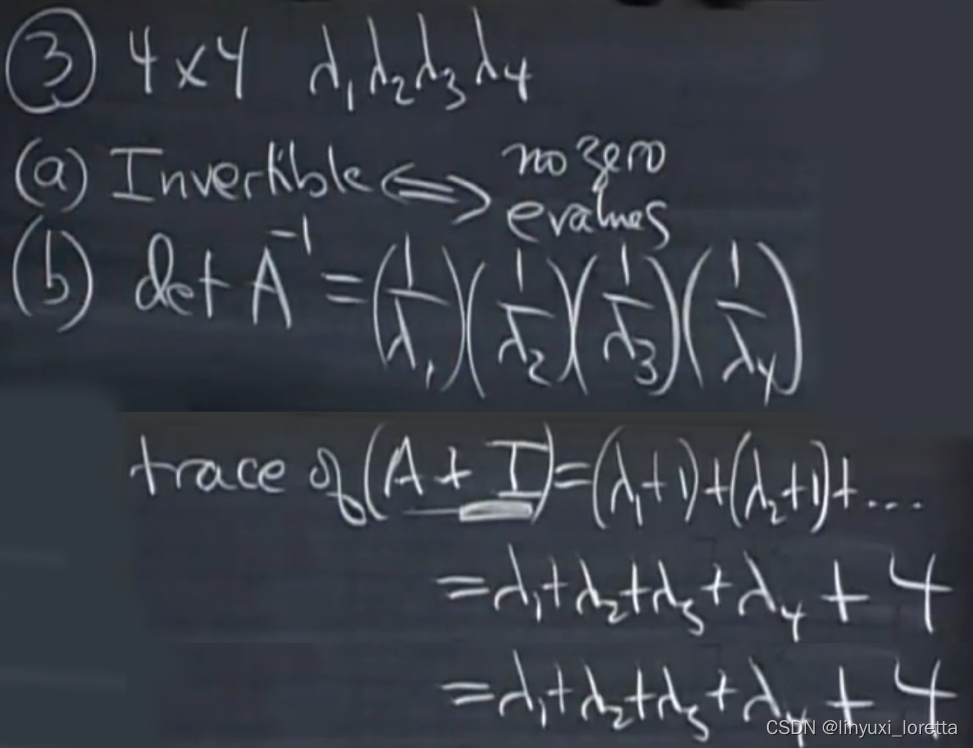 ③ 4×4 λ₁ λ₂ λ₃ λ₄
(a) Invertible ⟺ no zero
evalues
(b) det A⁻¹ = (1/λ₁)(1/λ₂)(1/λ₃)(1/λ₄)
trace of (A + I) = (λ₁+1)+(λ₂+1)+...
= λ₁+λ₂+λ₃+λ₄ + 4
= λ₁+λ₂+λ₃+λ₄ + 4
CSDN @linyuxi_loretta